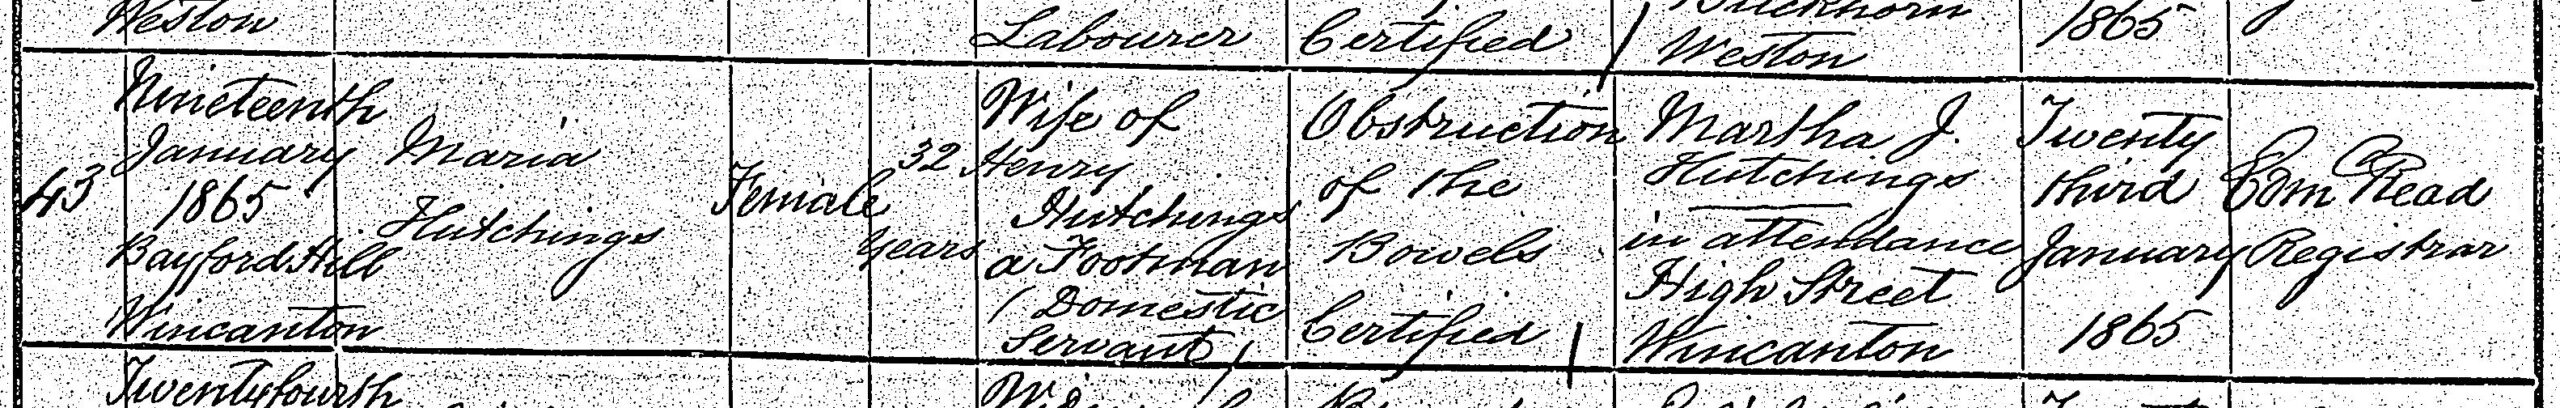 Weston
Labourer
Certified
Buckhorn
Weston
1865
43
Nineteenth
January
1865
Bayford Hill
Wincanton
Maria
Hutchings
Female
32
years
Wife of
Henry
Hutchings
a Footman
(Domestic
Servant)
Obstruction
of the
Bowels
Certified
Martha J.
Hutchings
in attendance
High Street
Wincanton
Twenty
third
January
1865
Read
Registrar
Twentyfourth